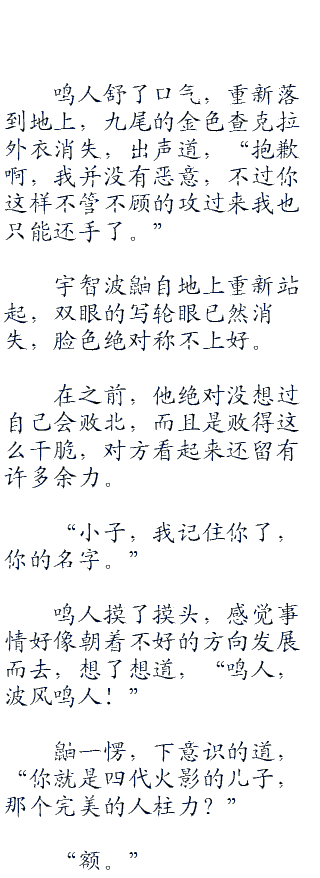 鸣人舒了口气，重新落
到地上，九尾的金色查克拉
外衣消失，出声道，“抱歉
啊，我并没有恶意，不过你
这样不管不顾的攻过来我也
只能还手了。”
宇智波鼬自地上重新站
起，双眼的写轮眼已然消
失，脸色绝对称不上好。
在之前，他绝对没想过
自己会败北，而且是败得这
么干脆，对方看起来还留有
许多余力。
“小子，我记住你了，
你的名字。”
鸣人摸了摸头，感觉事
情好像朝着不好的方向发展
而去，想了想道，“鸣人，
波风鸣人！”
鼬一愣，下意识的道，
“你就是四代火影的儿子，
那个完美的人柱力？”
“额。”